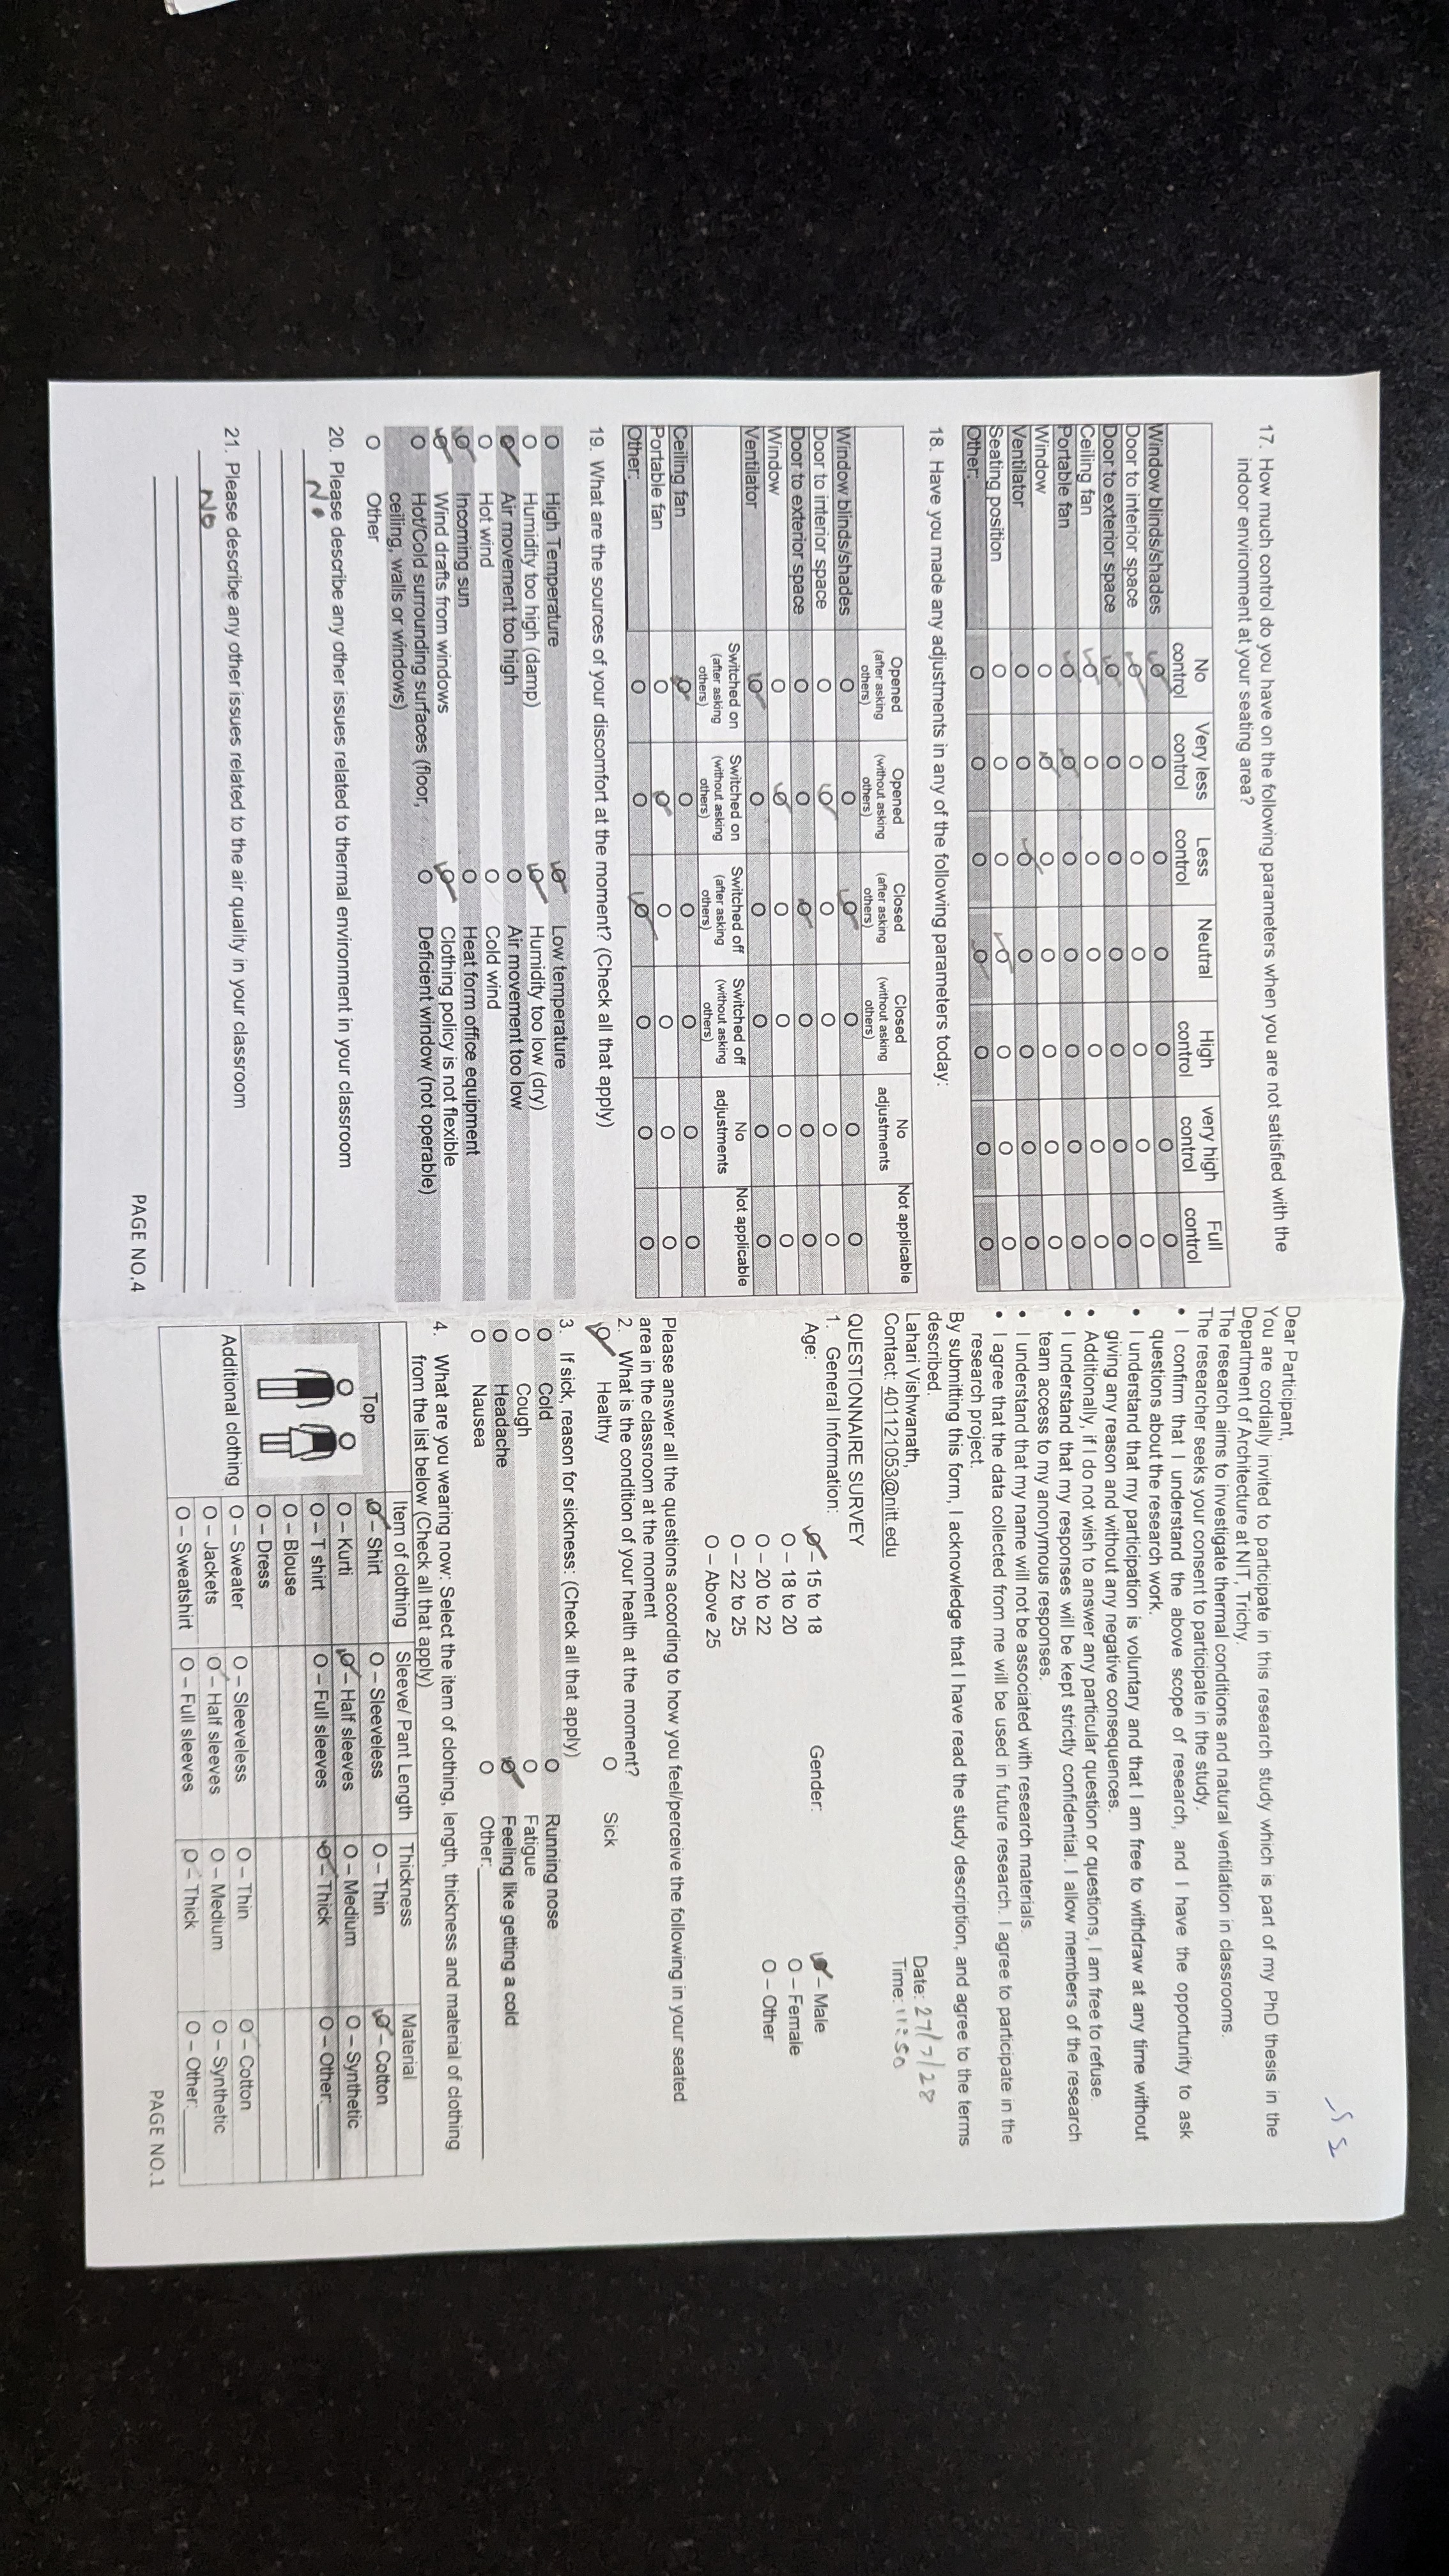 17. How much control do you have on the following parameters when you are not satisfied with the
indoor environment at your seating area?
No control Very less control Less control Neutral High control very high control Full control
Window blinds/shades O O O O O O O
Door to interior space O O O O O O O
Door to exterior space O O O O O O O
Ceiling fan O O O O O O O
Portable fan O O O O O O O
Window O O O O O O O
Ventilator O O O O O O O
Seating position O O O O O O O
Other: O O O O O O O
18. Have you made any adjustments in any of the following parameters today:
Opened (after asking others) Opened (without asking others) Closed (after asking others) Closed (without asking others) No adjustments Not applicable
Window blinds/shades O O O O O O
Door to interior space O O O O O O
Door to exterior space O O O O O O
Window O O O O O O
Ventilator O O O O O O
Switched on (after asking others) Switched on (without asking others) Switched off (after asking others) Switched off (without asking others) No adjustments Not applicable
Ceiling fan O O O O O O
Portable fan O O O O O O
Other: O O O O O O
19. What are the sources of your discomfort at the moment? (Check all that apply)
O High Temperature O Low temperature
O Humidity too high (damp) O Humidity too low (dry)
O Air movement too high O Air movement too low
O Hot wind O Cold wind
O Incoming sun O Heat form office equipment
O Wind drafts from windows O Clothing policy is not flexible
O Hot/Cold surrounding surfaces (floor, O Deficient window (not operable)
ceiling, walls or windows)
O Other
20. Please describe any other issues related to thermal environment in your classroom
No
21. Please describe any other issues related to the air quality in your classroom
No
PAGE NO.4
Dear Participant,
You are cordially invited to participate in this research study which is part of my PhD thesis in the
Department of Architecture at NIT, Trichy.
The research aims to investigate thermal conditions and natural ventilation in classrooms.
The researcher seeks your consent to participate in the study.
• I confirm that I understand the above scope of research, and I have the opportunity to ask
questions about the research work.
• I understand that my participation is voluntary and that I am free to withdraw at any time without
giving any reason and without any negative consequences.
• Additionally, if I do not wish to answer any particular question or questions, I am free to refuse.
• I understand that my responses will be kept strictly confidential. I allow members of the research
team access to my anonymous responses.
• I understand that my name will not be associated with research materials.
• I agree that the data collected from me will be used in future research. I agree to participate in the
research project.
By submitting this form, I acknowledge that I have read the study description, and agree to the terms
described.
Lahari Vishwanath, Date: 27/7/28
Contact: 401121053@nitt.edu Time: 11:50
QUESTIONNAIRE SURVEY
1. General Information:
Age: O – 15 to 18 Gender: O – Male
O – 18 to 20 O – Female
O – 20 to 22 O – Other
O – 22 to 25
O – Above 25
Please answer all the questions according to how you feel/perceive the following in your seated
area in the classroom at the moment
2. What is the condition of your health at the moment?
O Healthy O Sick
3. If sick, reason for sickness: (Check all that apply)
O Cold O Running nose
O Cough O Fatigue
O Headache O Feeling like getting a cold
O Nausea O Other:
4. What are you wearing now: Select the item of clothing, length, thickness and material of clothing
from the list below (Check all that apply)
Item of clothing Sleeve/ Pant Length Thickness Material
Top O – Shirt O – Sleeveless O – Thin O – Cotton
O – Kurti O – Half sleeves O – Medium O – Synthetic
O – T shirt O – Full sleeves O – Thick O – Other:
O – Blouse
O – Dress
Additional clothing O – Sweater O – Sleeveless O – Thin O – Cotton
O – Jackets O – Half sleeves O – Medium O – Synthetic
O – Sweatshirt O – Full sleeves O – Thick O – Other:
PAGE NO.1